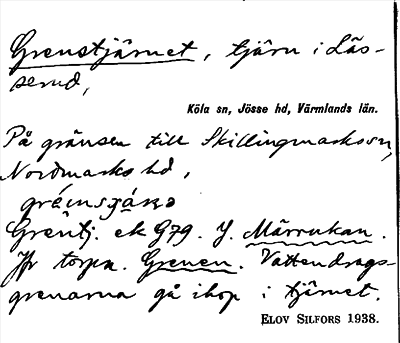 Grenstjärnet, tjärn i Läs-
serud,
Köla sn, Jösse hd, Värmlands län.
På gränsen till Skillingmarks sn,
Nordmarks hd,
Grentj. ek G79. J. Märrukan.
Jfr torpn. Grenen. Vattendrags-
grenarna gå ihop i tjärnet.
ELOV SILFORS 1938.